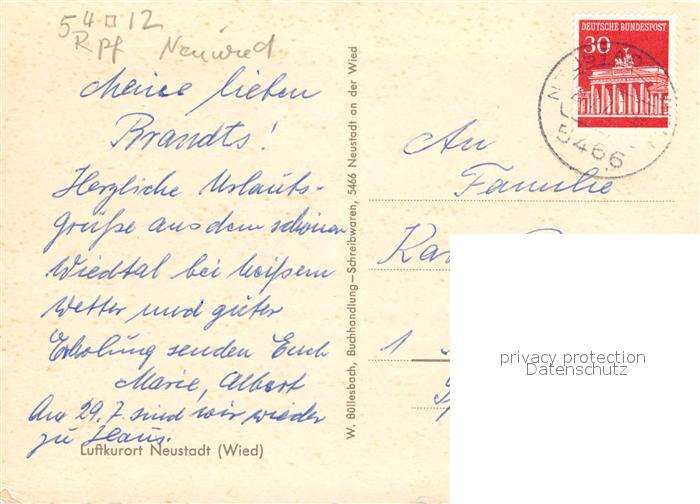 54 □ 12
Rpf Neuwied
Meine lieben
Brandts!
Herzliche Urlaubs-
grüße aus dem schönen
Wiedtal bei heißem
Wetter und guter
Erholung senden Euch
Marie, Albert
Am 29.7. sind wir wieder
zu Haus.
Luftkurort Neustadt (Wied)
W. Büllesbach, Buchhandlung—Schreibwaren, 5466 Neustadt an der Wied
DEUTSCHE BUNDESPOST
30
5466
An
Familie
1
privacy protection
Datenschutz